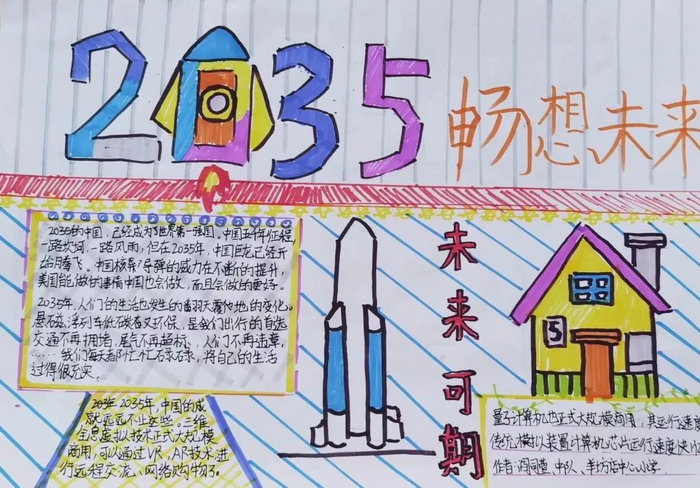 2035 畅想未来
2035的中国，已经成为世界第一强国，中国五件征程
一路坎坷，一路风雨，但在2035年，中国巨龙已经开
始腾飞。中国核导弹的威力在不断的提升，
美国能做的事情中国也会做，而且会做的更好。
2035年，人们的生活也发生的番羽天覆地的变化。
悬磁浮列车低碳又环保，是我们出行的首选
交通不再拥堵，尾气不再超标，人们不再违章，
……我们每天都忙忙碌碌，将自己的生活
过得很充实。
2035年，中国的成
就远远不止这些。三维
全息虚拟技术正式大规模
商用，可以通过VR，AR技术进
行远程交流，网络购物了。
未来可期
5
量子计算机也正式大规模商用，其运行速度
传统模拟装置计算机芯片运行速度快亿
作者：同堂，中队、丰坊店中心小学